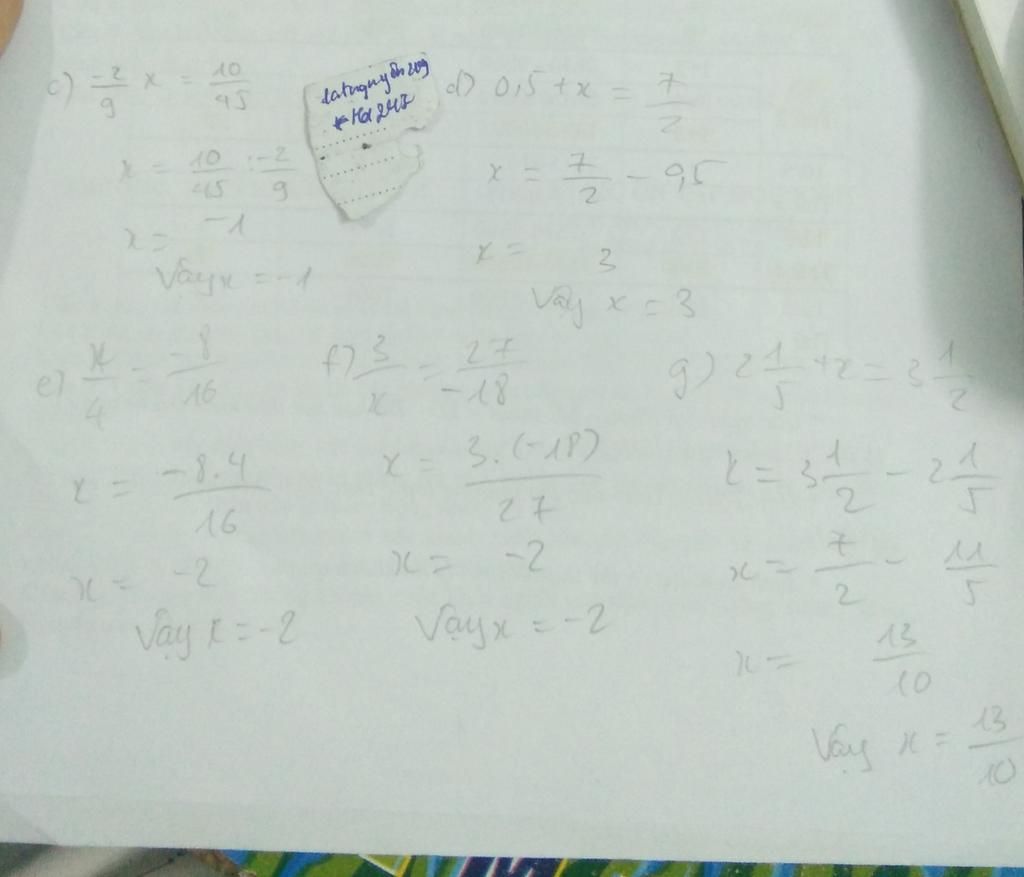 c) -2/9 x = 10/45
x = 10/45 : -2/9
x = -1
Vậy x = -1
d) 0,5 + x = 7/2
x = 7/2 - 0,5
x = 3
Vậy x = 3
e) x/4 = -8/16
x = -8.4/16
x = -2
Vậy x = -2
f) 3/x = 27/-18
x = 3.(-18)/27
x = -2
Vậy x = -2
g) 2 1/5 + x = 3 1/2
x = 3 1/2 - 2 1/5
x = 7/2 - 11/5
x = 13/10
Vậy x = 13/10